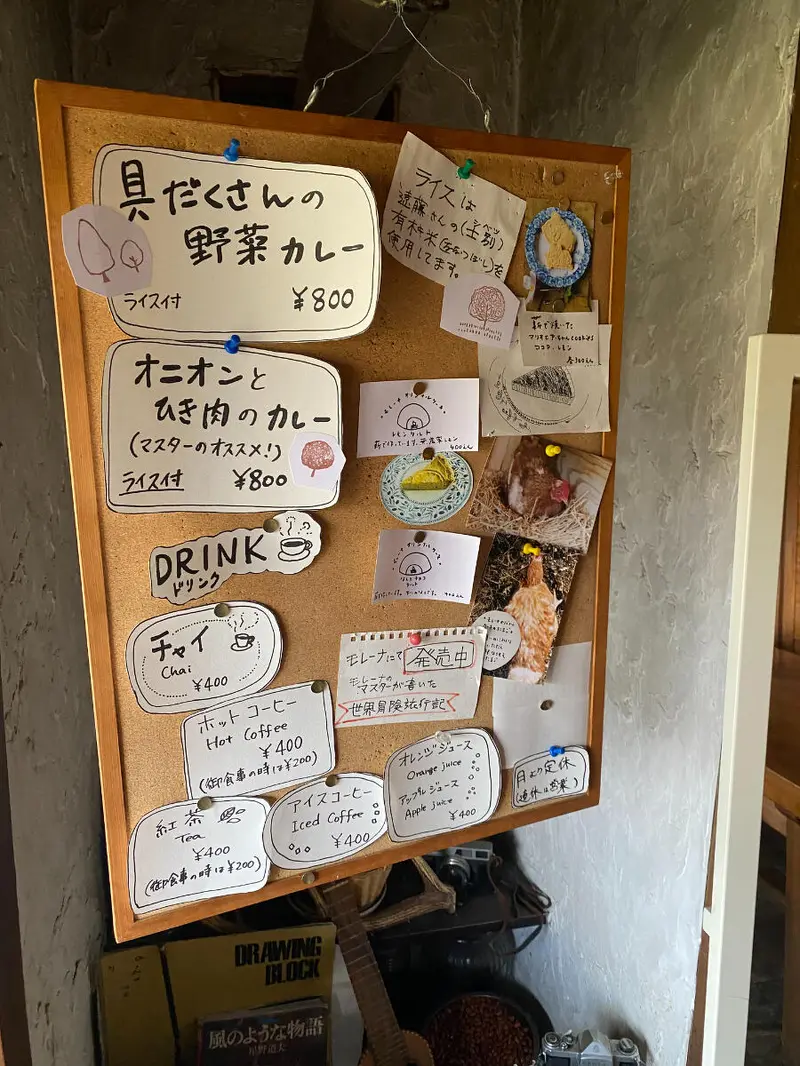 具だくさんの
野菜カレー
ライス付 ¥800
オニオンと
ひき肉のカレー
(マスターのオススメ!)
ライス付 ¥800
DRINK
ドリンク
チャイ
Chai
¥400
ホットコーヒー
Hot Coffee
¥400
(御食事の時は¥200)
紅茶
Tea
¥400
(御食事の時は¥200)
アイスコーヒー
Iced Coffee
¥400
オレンジジュース
Orange juice
アップルジュース
Apple juice
¥400
ライスは
遠藤さんの(士別)
シベツ
有林米(ななつぼし)を
使用してます。
薪で焼いた
cookies
ココア・レモン
各300えん
レモンタルト
400えん
モレーナにて 発売中
モレーナの
マスターが書いた
世界冒険旅行記
月より定休
(連休は営業)
DRAWING
BLOCK
風のような物語
星野道夫